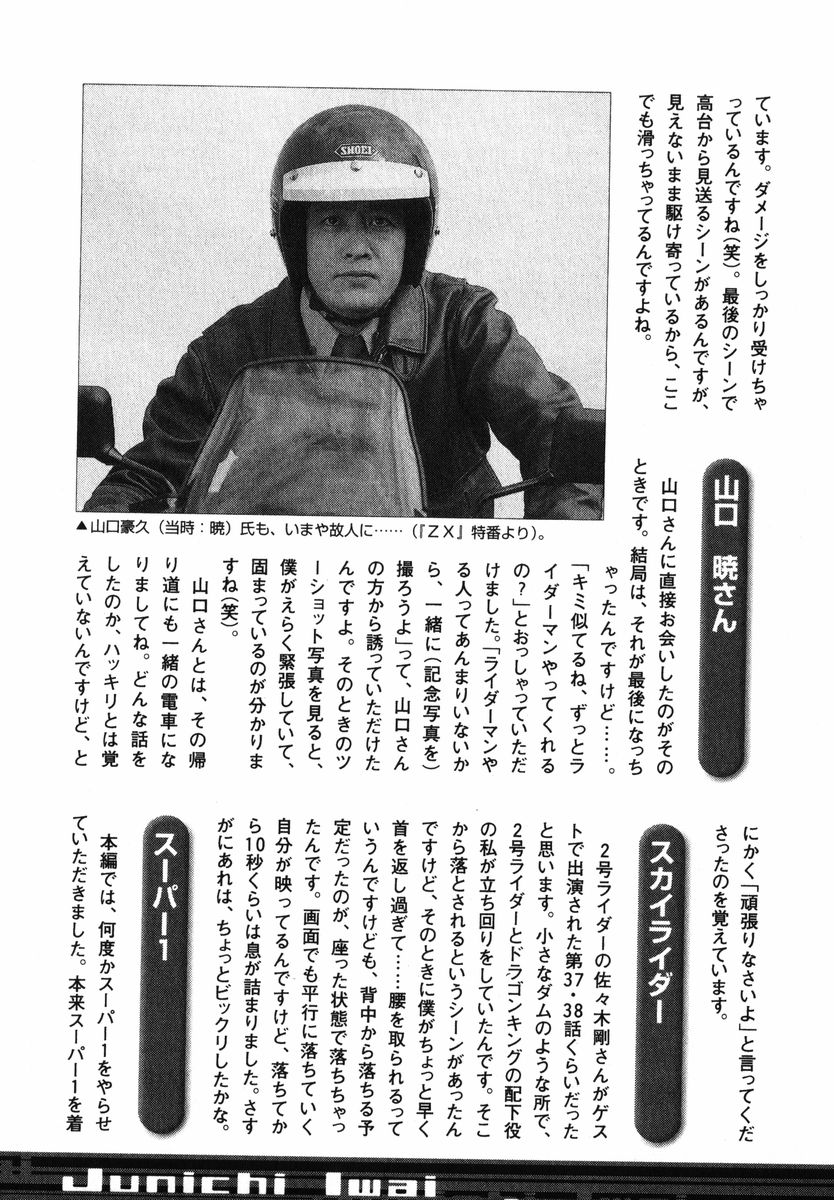 ています。ダメージをしっかり受けちゃ
っているんですね(笑)。最後のシーンで
高台から見送るシーンがあるんですが、
見えないまま駆け寄っているから、ここ
でも滑っちゃってるんですよね。
SHOEI
▲山口豪久(当時:暁)氏も、いまや故人に……(『ZX』特番より)。
山口 暁さん
山口さんに直接お会いしたのがその
ときです。結局は、それが最後になっち
ゃったんですけど……。
「キミ似てるね、ずっとラ
イダーマンやってくれる
の?」とおっしゃっていただ
けました。「ライダーマンや
る人ってあんまりいないか
ら、一緒に(記念写真を)
撮ろうよ」って、山口さん
の方から誘っていただけた
んですよ。そのときのツ
ーショット写真を見ると、
僕がえらく緊張していて、
固まっているのが分かりま
すね(笑)。
山口さんとは、その帰
り道にも一緒の電車にな
りましてね。どんな話を
したのか、ハッキリとは覚
えていないんですけど、と
にかく「頑張りなさいよ」と言ってくだ
さったのを覚えています。
スカイライダー
2号ライダーの佐々木剛さんがゲス
トで出演された第37・38話くらいだった
と思います。小さなダムのような所で、
2号ライダーとドラゴンキングの配下役
の私が立ち回りをしていたんです。そこ
から落とされるというシーンがあったん
ですけど、そのときに僕がちょっと早く
首を返し過ぎて……腰を取られるって
いうんですけども、背中から落ちる予
定だったのが、座った状態で落ちちゃっ
たんです。画面でも平行に落ちていく
自分が映ってるんですけど、落ちてか
ら10秒くらいは息が詰まりました。さす
がにあれは、ちょっとビックリしたかな。
スーパー1
本編では、何度かスーパー1をやらせ
ていただきました。本来スーパー1を着
Junichi Iwai